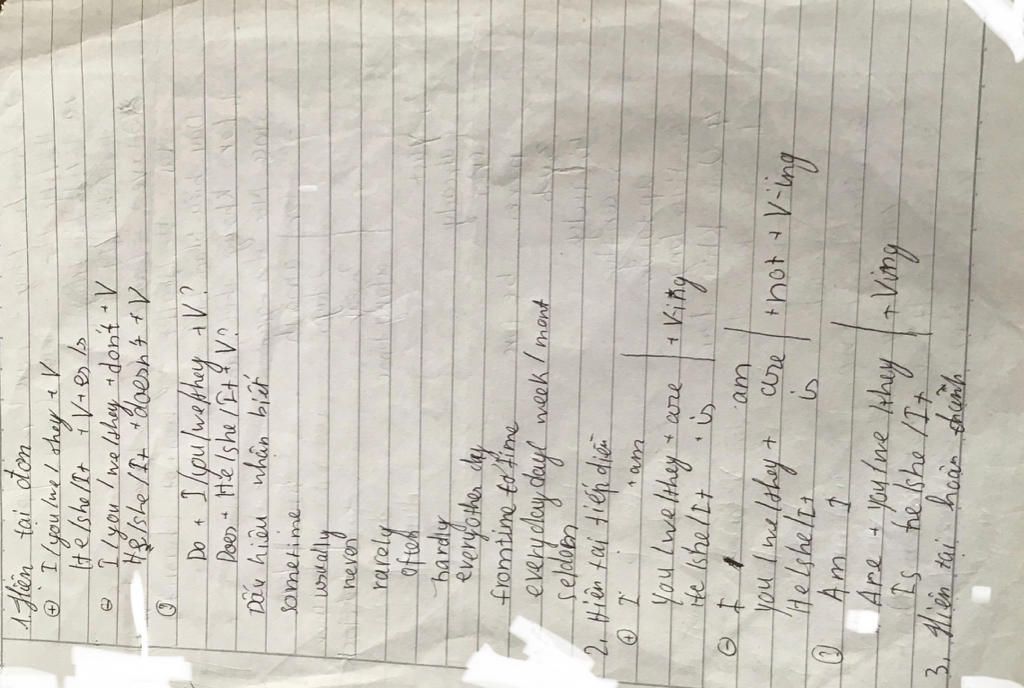 1. Hiện tại đơn
⊕ I/you/we/they + V
He/she/It + V+es/s
⊖ I/you/we/they + don't + V
He/she/It + doesn't + V
?
Do + I/you/we/they + V?
Does + He/she/It + V?
Dấu hiệu nhân biết
sometime
usually
never
rarely
often
hardly
everyother day
fromtime to time
everyday day/ week / mont
seldom
2, Hiên tai tiếp diễn
⊕ I + am
You / we / they + are + V-ing
He /she /It + is
⊖ I am
you / we /they + are + not + V-ing
He /she /It is
? Am I
Are + you / we / they + Ving
Is he /she / It
3. Hiên tai hoàn thành